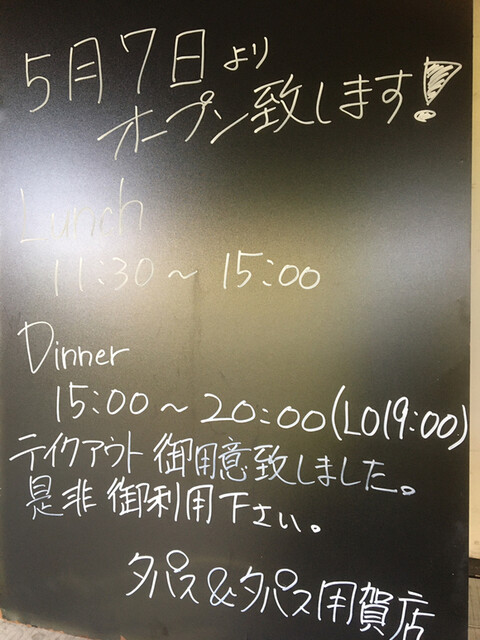 5月7日より
オープン致します!
Lunch
11:30～15:00
Dinner
15:00～20:00(LO19:00)
テイクアウト御用意致しました。
是非御利用下さい。
タパス&タパス用賀店